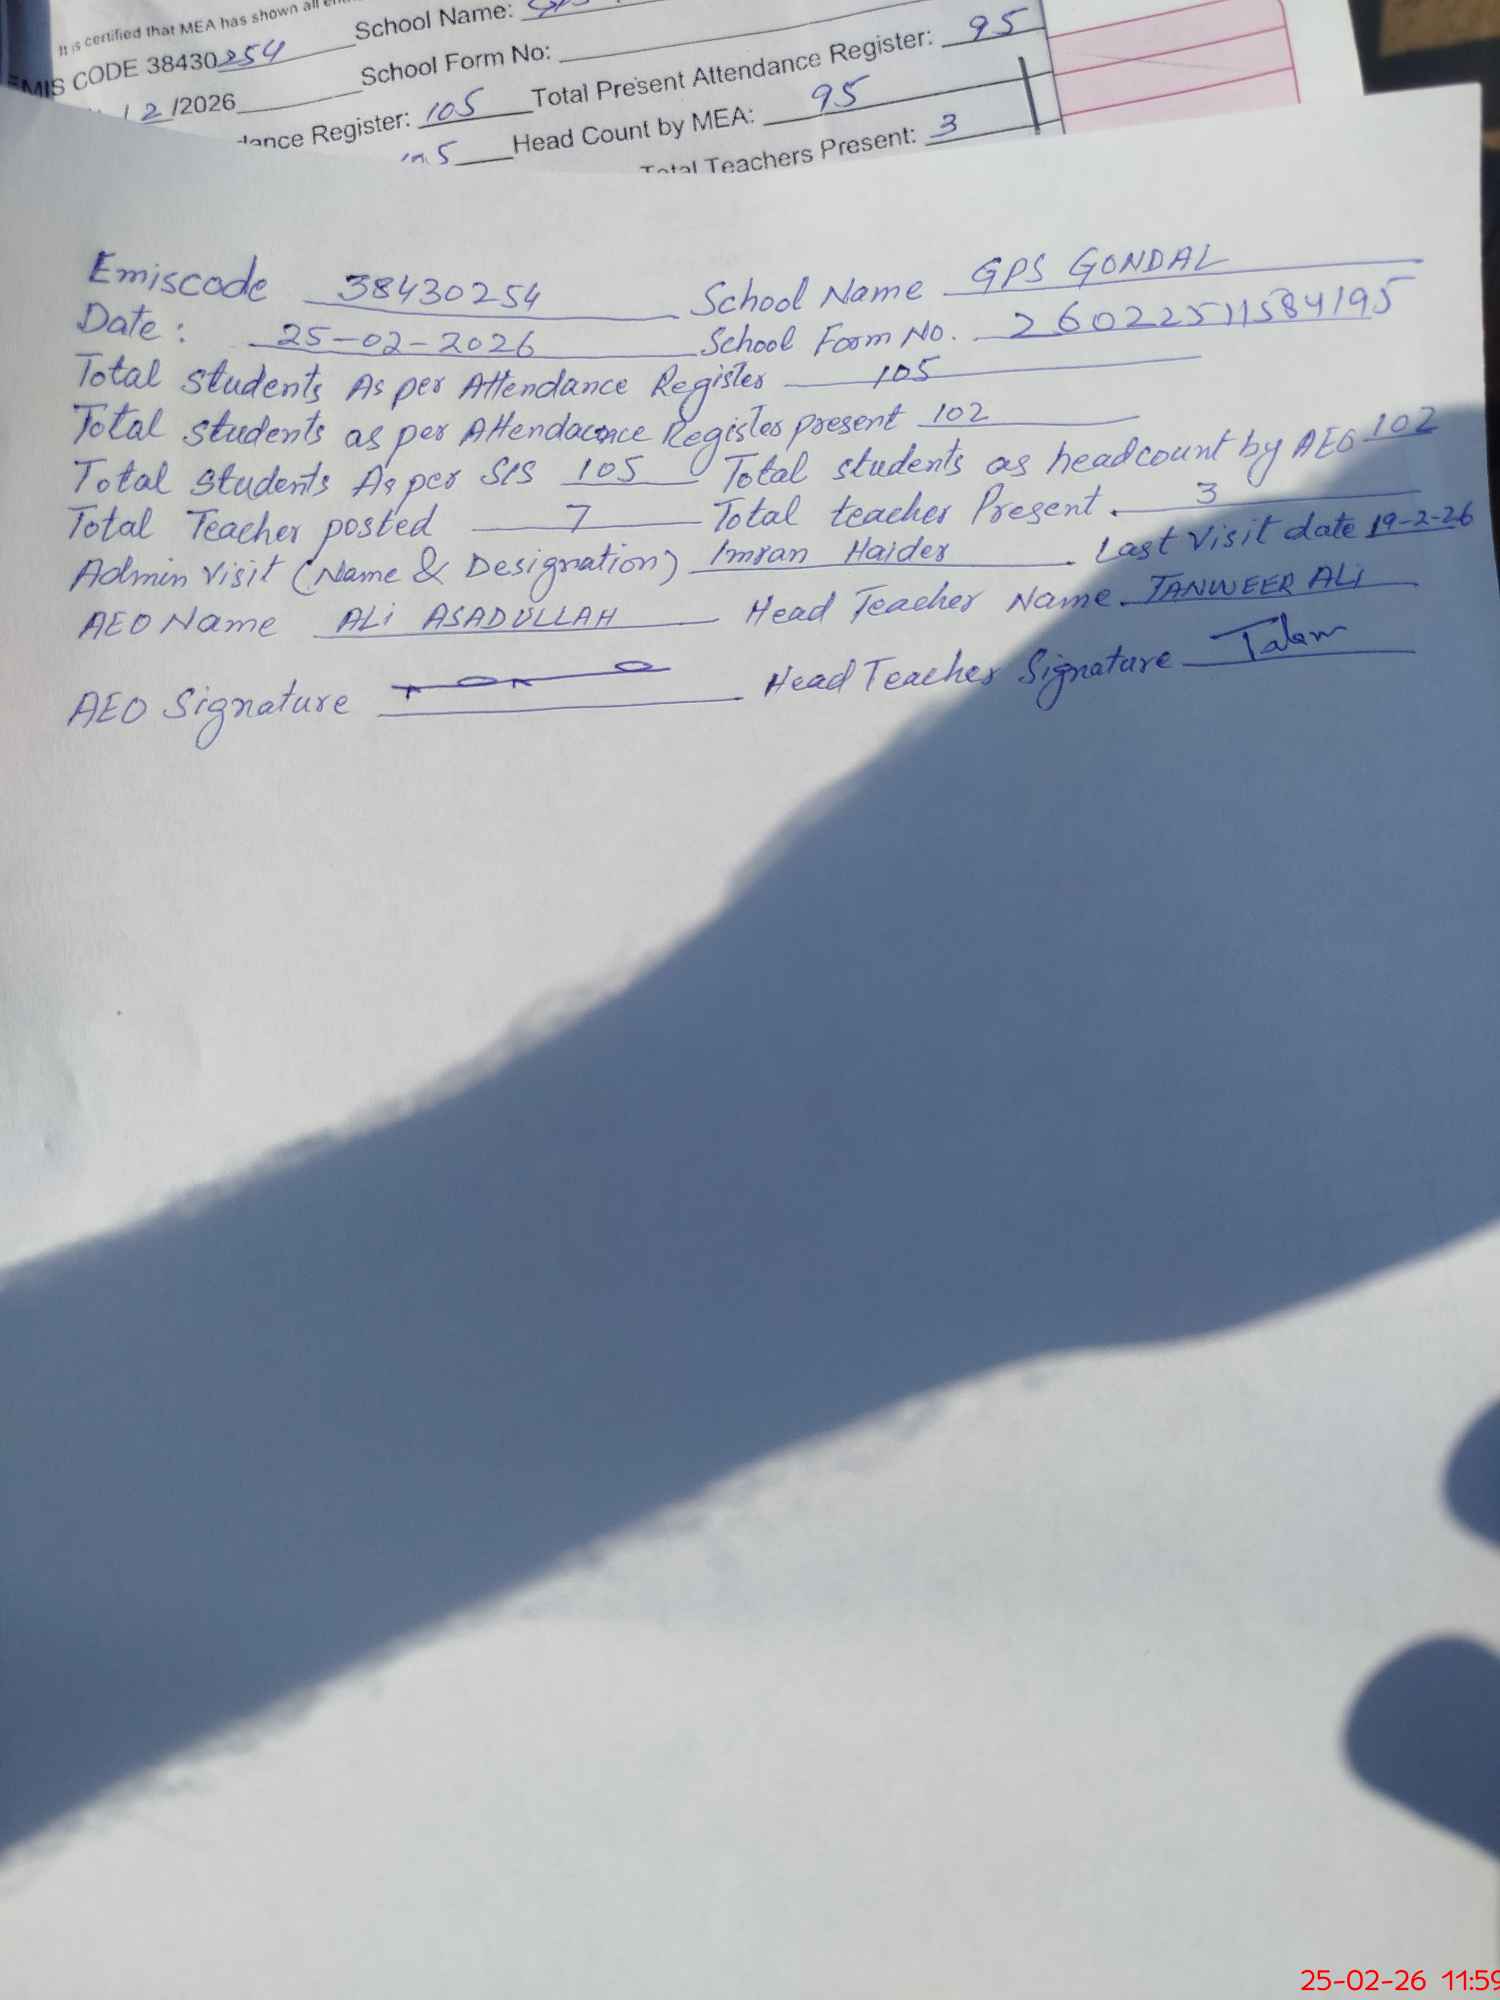 It is certified that MEA has shown all
EMIS CODE 38430254 School Name:
/2/2026 School Form No:
dance Register: 105 Total Present Attendance Register: 95
Head Count by MEA: 95
Total Teachers Present: 3
Emiscode 38430254 School Name GPS GONDAL
Date: 25-02-2026 School Form No. 26022511584195
Total students As per Attendance Register 105
Total students as per Attendacnce Register present 102
Total Students As per SIS 105 Total students as headcount by AEO 102
Total Teacher posted 7 Total teacher Present. 3
Admin Visit (Name & Designation) Imran Haider Last Visit date 19-2-26
AEO Name ALi ASADULLAH Head Teacher Name. TANWEER ALi
AEO Signature Head Teacher Signature
25-02-26 11:59